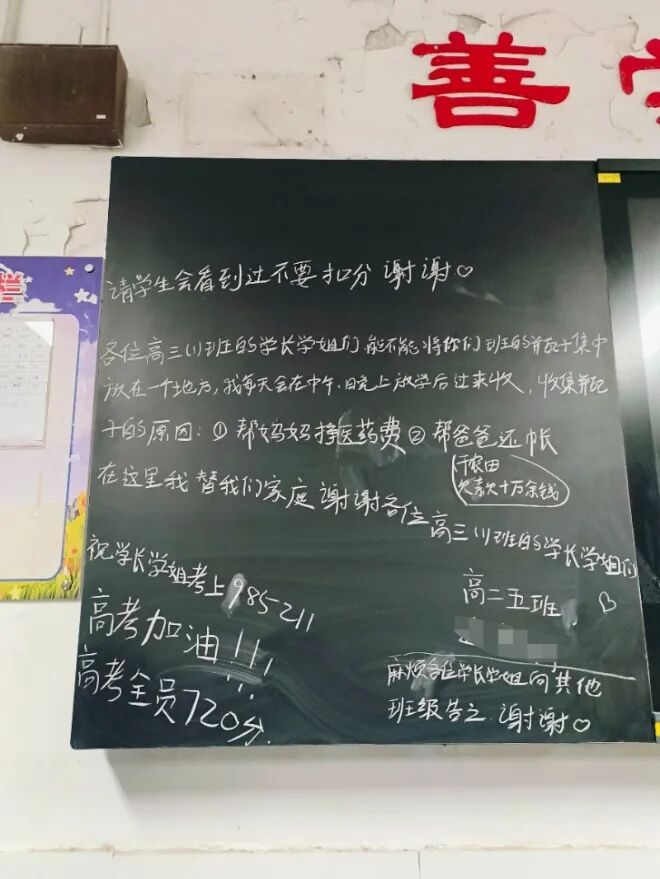 善
栏
请学生会看到过不要扣分 谢谢♡
各位高三(1)班的学长学姐们,能不能将你们班的瓶子集中
放在一个地方,我每天会在中午、晚上放学后过来收,收集瓶
子的原因:① 帮妈妈挣医药费 ② 帮爸爸还帐
干农田
欠款十万余钱
在这里我替我们家庭 谢谢各位高三(1)班的学长学姐们
祝学长学姐考上985 211
高二五班 ♡
高考加油!!!
高考全员720分.
麻烦各位学长学姐向其他
班级告之 谢谢♡